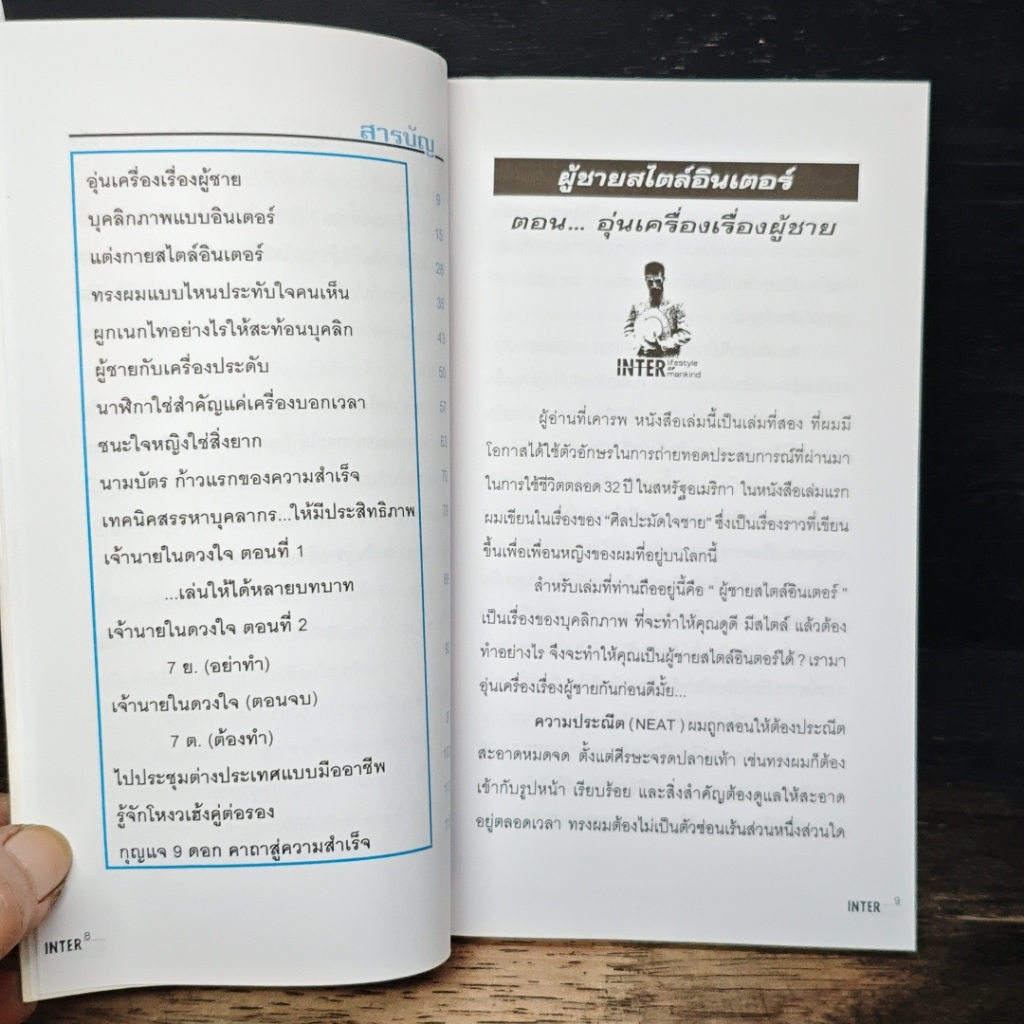 สารบัญ
อุ่นเครื่องเรื่องผู้ชาย 9
บุคลิกภาพแบบอินเตอร์ 15
แต่งกายสไตล์อินเตอร์ 28
ทรงผมแบบไหนประทับใจคนเห็น 36
ผูกเนกไทอย่างไรให้สะท้อนบุคลิก 43
ผู้ชายกับเครื่องประดับ 50
นาฬิกาใช่สำคัญแค่เครื่องบอกเวลา 57
ชนะใจหญิงใช่สิ่งยาก 63
นามบัตร ก้าวแรกของความสำเร็จ 70
เทคนิคสรรหาบุคลากร...ให้มีประสิทธิภาพ
เจ้านายในดวงใจ ตอนที่ 1
...เล่นให้ได้หลายบทบาท
เจ้านายในดวงใจ ตอนที่ 2
7 ย. (อย่าทำ)
เจ้านายในดวงใจ (ตอนจบ)
7 ต. (ต้องทำ)
ไปประชุมต่างประเทศแบบมืออาชีพ
รู้จักโหงวเฮ้งคู่ต่อรอง
กุญแจ 9 ดอก คาถาสู่ความสำเร็จ
INTER 8
ผู้ชายสไตล์อินเตอร์
ตอน... อุ่นเครื่องเรื่องผู้ชาย
INTER lifestyle of mankind
ผู้อ่านที่เคารพ หนังสือเล่มนี้เป็นเล่มที่สอง ที่ผมมี
โอกาสได้ใช้ตัวอักษรในการถ่ายทอดประสบการณ์ที่ผ่านมา
ในการใช้ชีวิตตลอด 32 ปี ในสหรัฐอเมริกา ในหนังสือเล่มแรก
ผมเขียนในเรื่องของ "ศิลปะมัดใจชาย" ซึ่งเป็นเรื่องราวที่เขียน
ขึ้นเพื่อเพื่อนหญิงของผมที่อยู่บนโลกนี้
สำหรับเล่มที่ท่านถืออยู่นี้คือ " ผู้ชายสไตล์อินเตอร์ "
เป็นเรื่องของบุคลิกภาพ ที่จะทำให้คุณดูดี มีสไตล์ แล้วต้อง
ทำอย่างไร จึงจะทำให้คุณเป็นผู้ชายสไตล์อินตอร์ได้ ? เรามา
อุ่นเครื่องเรื่องผู้ชายกันก่อนดีมั้ย...
ความประณีต (NEAT ) ผมถูกสอนให้ต้องประณีต
สะอาดหมดจด ตั้งแต่ศีรษะจรดปลายเท้า เช่นทรงผมก็ต้อง
เข้ากับรูปหน้า เรียบร้อย และสิ่งสำคัญต้องดูแลให้สะอาด
อยู่ตลอดเวลา ทรงผมต้องไม่เป็นตัวซ่อนเร้นส่วนหนึ่งส่วนใด
INTER 9